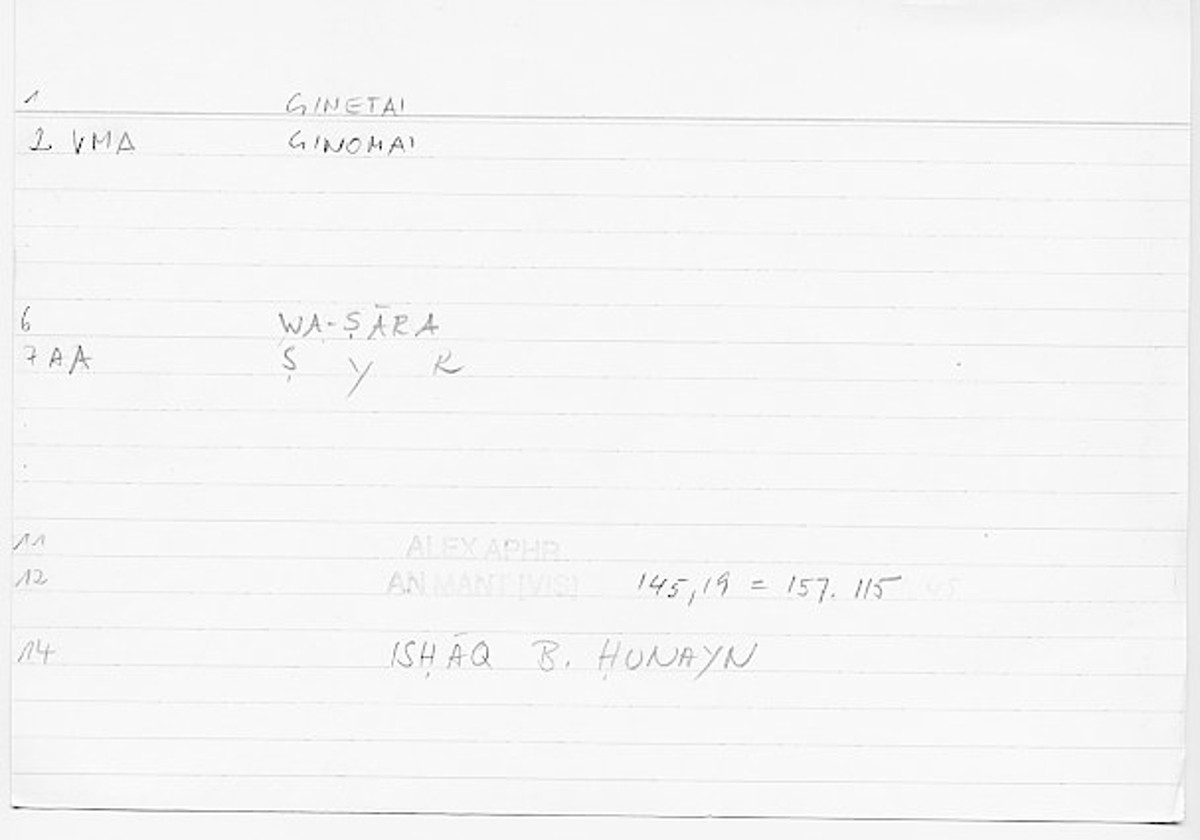 1 GINETAI
2 VMA GINOMAI
6 WA-ṢĀRA
7 AA Ṣ Y R
11 ALEX APHR
12 AN MANT [VIS] 145,19 = 157. 115
14 ISḤĀQ B. ḤUNAYN